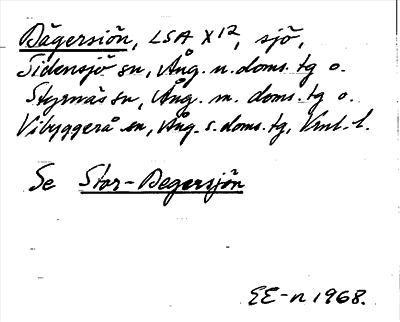 Dägersjön, LSA X12, sjö,
Sidensjö sn, Ång. n. doms. tg o.
Styrnäs sn, Ång. m. doms. tg o.
Vibyggerå sn, Ång. s. doms. tg, Vnl. l.
Se Stor-Degersjön
EE-n 1968.